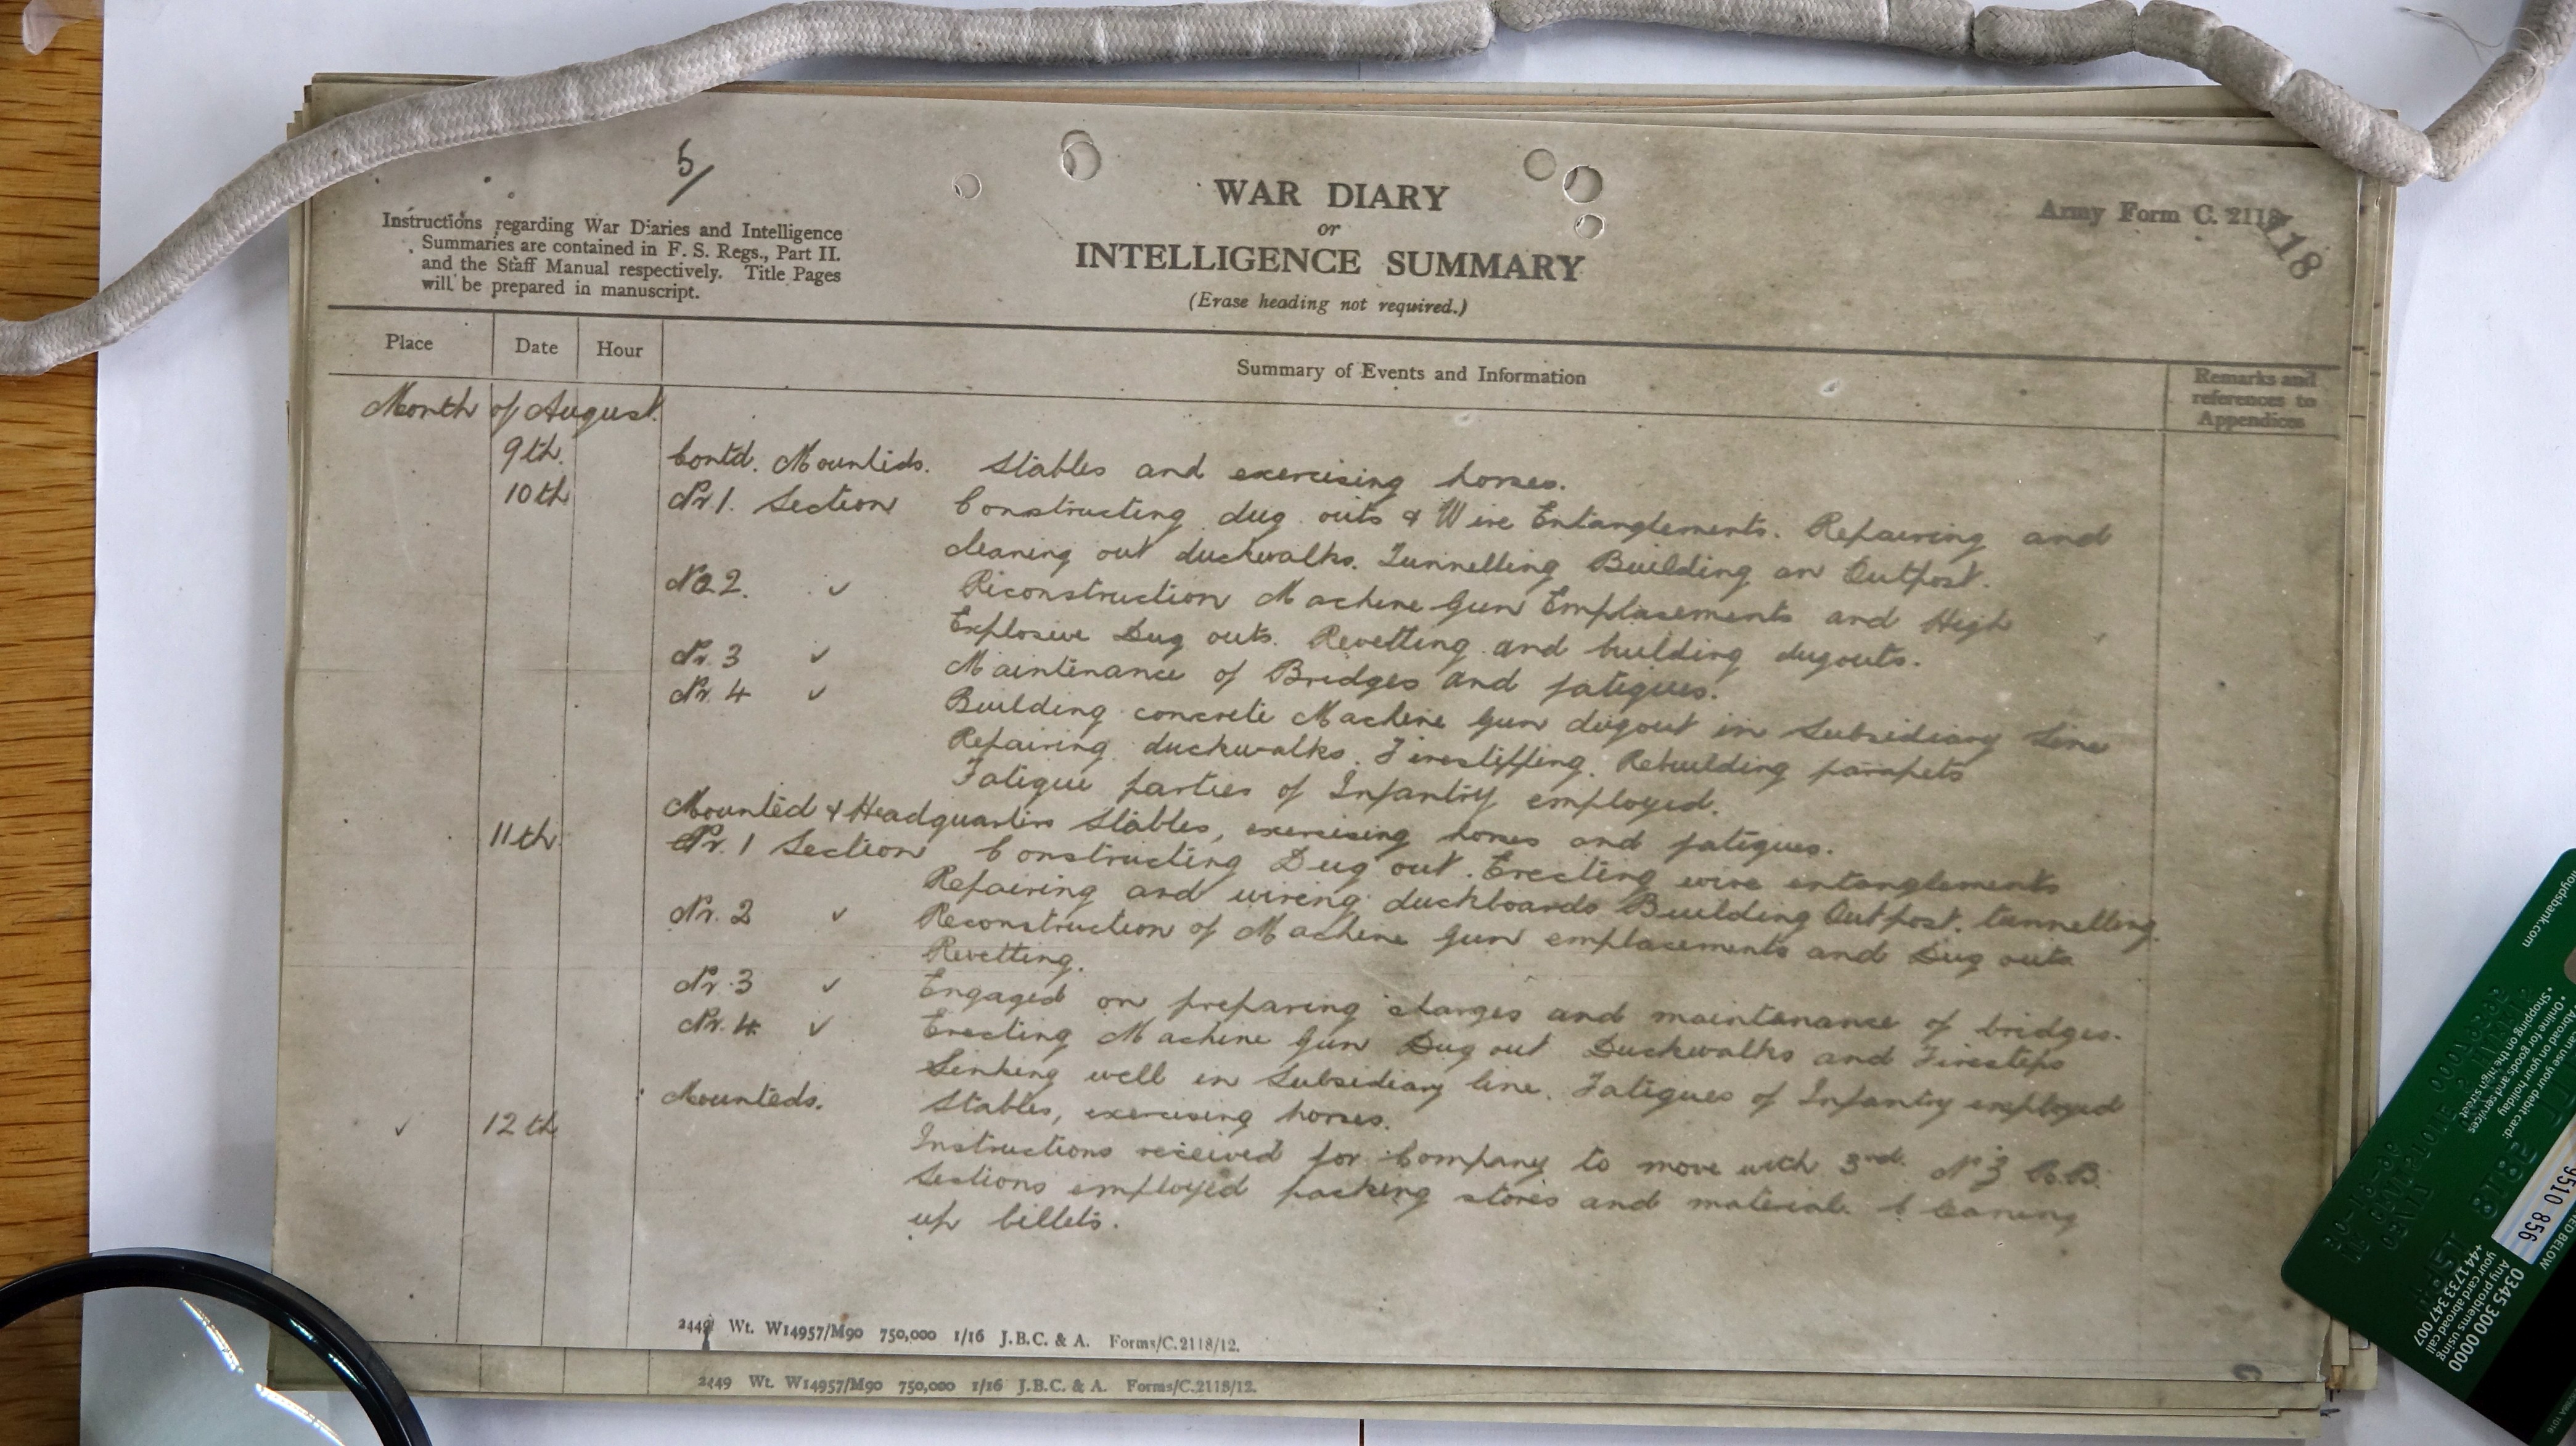 5/
WAR DIARY
or
INTELLIGENCE SUMMARY
(Erase heading not required.)
Army Form C. 2118
118
Instructions regarding War Diaries and Intelligence
Summaries are contained in F. S. Regs., Part II.
and the Staff Manual respectively. Title Pages
will be prepared in manuscript.
Place Date Hour Summary of Events and Information Remarks and references to Appendices
Month of August.
9th. Contd. Mounteds. Stables and exercising horses.
10th Nr 1. Section Constructing dug outs & Wire Entanglements. Repairing and
cleaning out duckwalks. Tunnelling Building an Outpost.
No 2. ✓ Reconstruction Machine Gun Emplasements and High
Explosive Dug outs. Revetting and building dugouts.
Nr. 3 ✓ Maintenance of Bridges and fatigues.
Nr. 4 ✓ Building concrete Machine Gun dugout in Subsidiary Line
Repairing duckwalks. Firestepping. Rebuilding parapets
Fatigue parties of Infantry employed.
Mounted & Headquarters Stables, exercising horses and fatigues.
11th Nr. 1 Section Constructing Dug out. Erecting wire entanglements
Repairing and wiring duckboards Building Outpost. tunnelling.
Nr. 2 ✓ Reconstruction of Machine Gun emplacements and Dug outs
Revetting.
Nr. 3 ✓ Engaged on preparing charges and maintenance of bridges.
Nr. 4. ✓ Erecting Machine Gun Dug out Duckwalks and Firesteps
Sinking well in Subsidiary line. Fatigues of Infantry employed
Mounteds. Stables, exercising horses.
✓ 12th Instructions received for Company to move with 3rd. N Z R.B.
Sections employed packing stores and material. Cleaning
up billets.
2449 Wt. W14957/M90 750,000 1/16 J.B.C. & A. Forms/C.2118/12.
2449 Wt. W14957/M90 750,000 1/16 J.B.C. & A. Forms/C.2118/12.